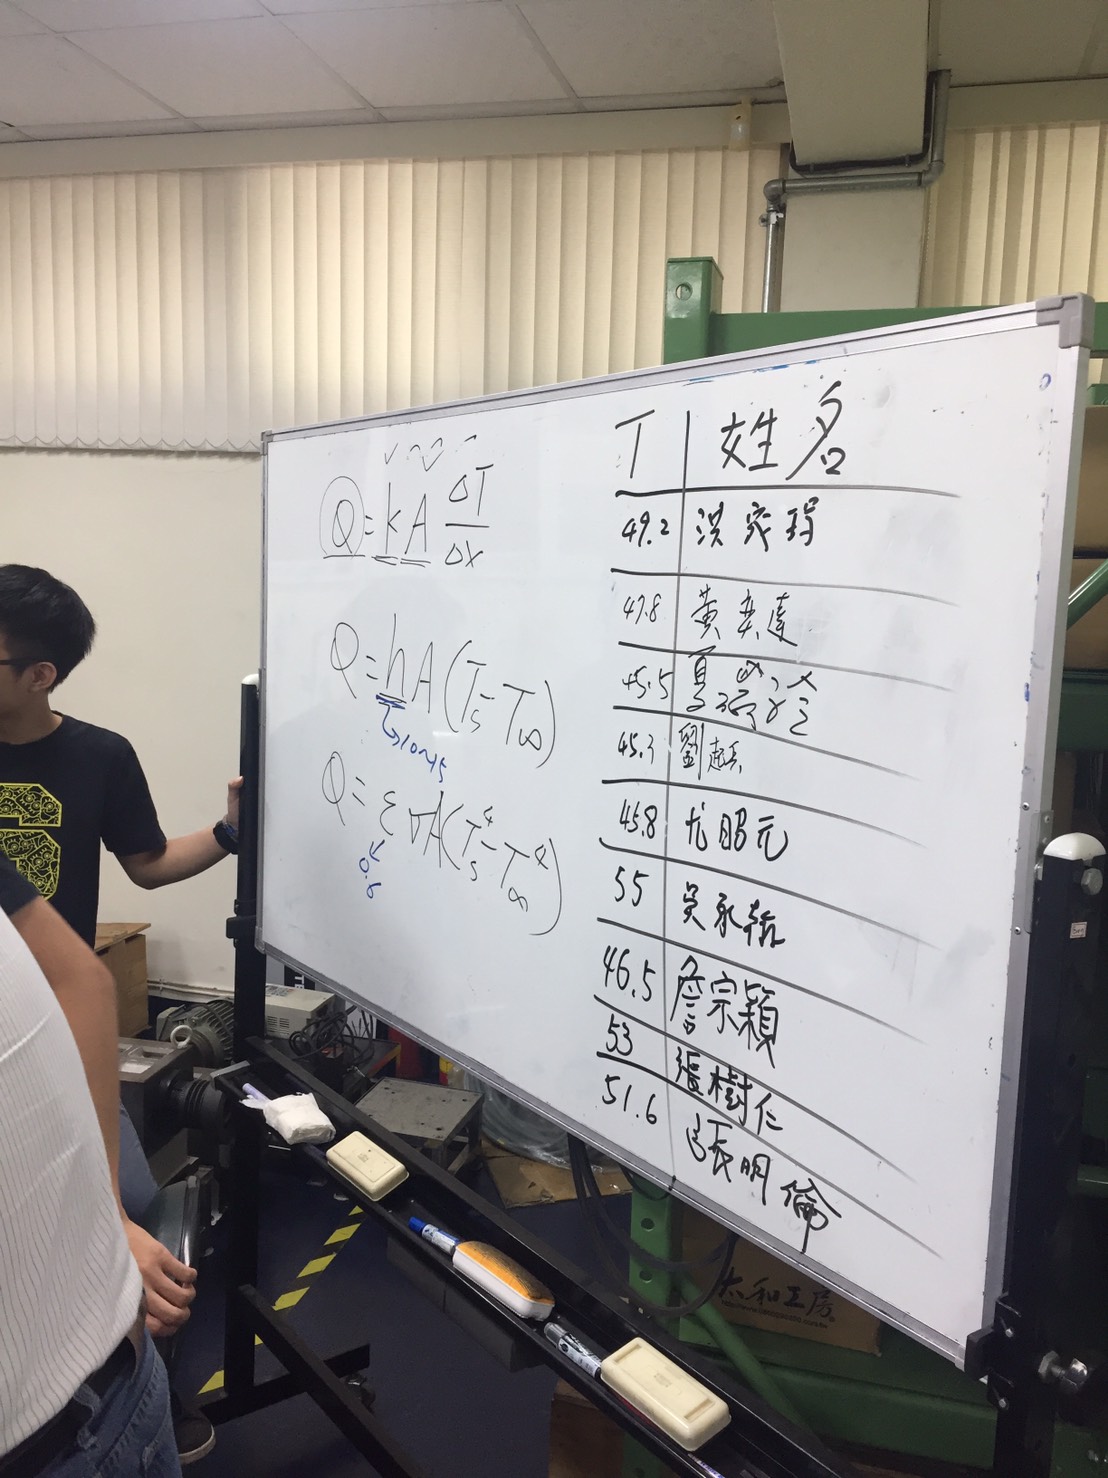 Q = kA ΔT/Δx
Q = hA(Ts - T∞)
10~15
Q = εσA(Ts⁴ - T∞⁴)
0.6
T 姓名
49.2 洪
47.8 黃奕達
45.5 夏
45.3 劉起
45.8 尤昭元
55 吳承翰
46.5 詹宗穎
53 張樹仁
51.6 張明倫
太和工房